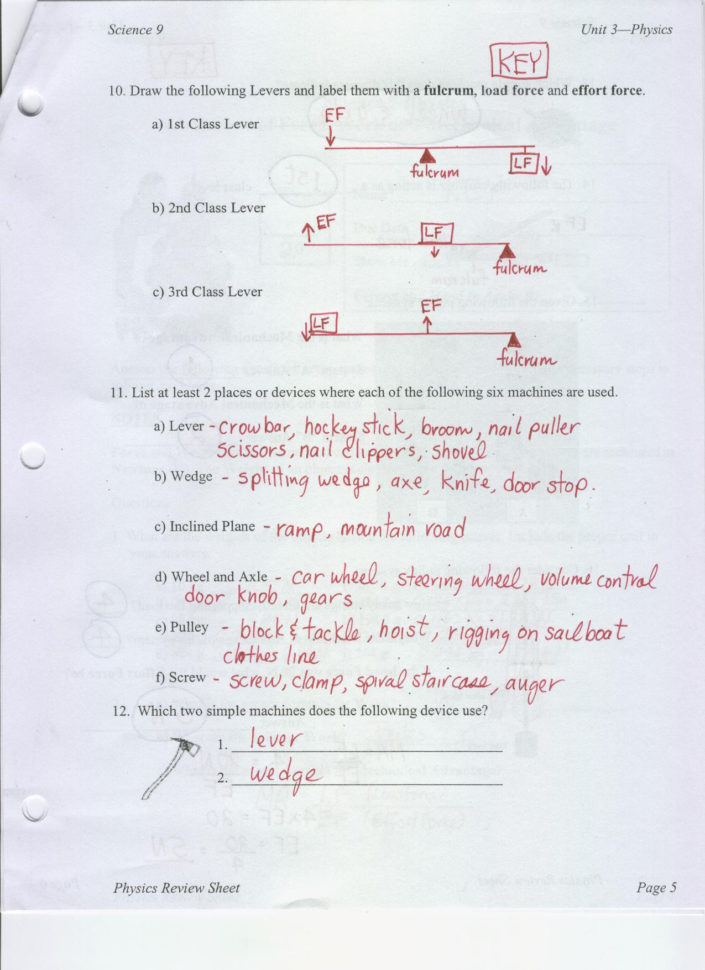 Science 9 Unit 3—Physics
KEY
10. Draw the following Levers and label them with a fulcrum, load force and effort force.
a) 1st Class Lever
EF
fulcrum
LF
b) 2nd Class Lever
EF
LF
fulcrum
c) 3rd Class Lever
EF
LF
fulcrum
11. List at least 2 places or devices where each of the following six machines are used.
a) Lever - crowbar, hockey stick, broom, nail puller
scissors, nail clippers, shovel
b) Wedge - splitting wedge, axe, knife, door stop.
c) Inclined Plane - ramp, mountain road
d) Wheel and Axle - car wheel, steering wheel, volume control
door knob, gears
e) Pulley - block & tackle, hoist, rigging on sailboat
clothes line
f) Screw - screw, clamp, spiral staircase, auger
12. Which two simple machines does the following device use?
1. lever
2. wedge
Physics Review Sheet Page 5